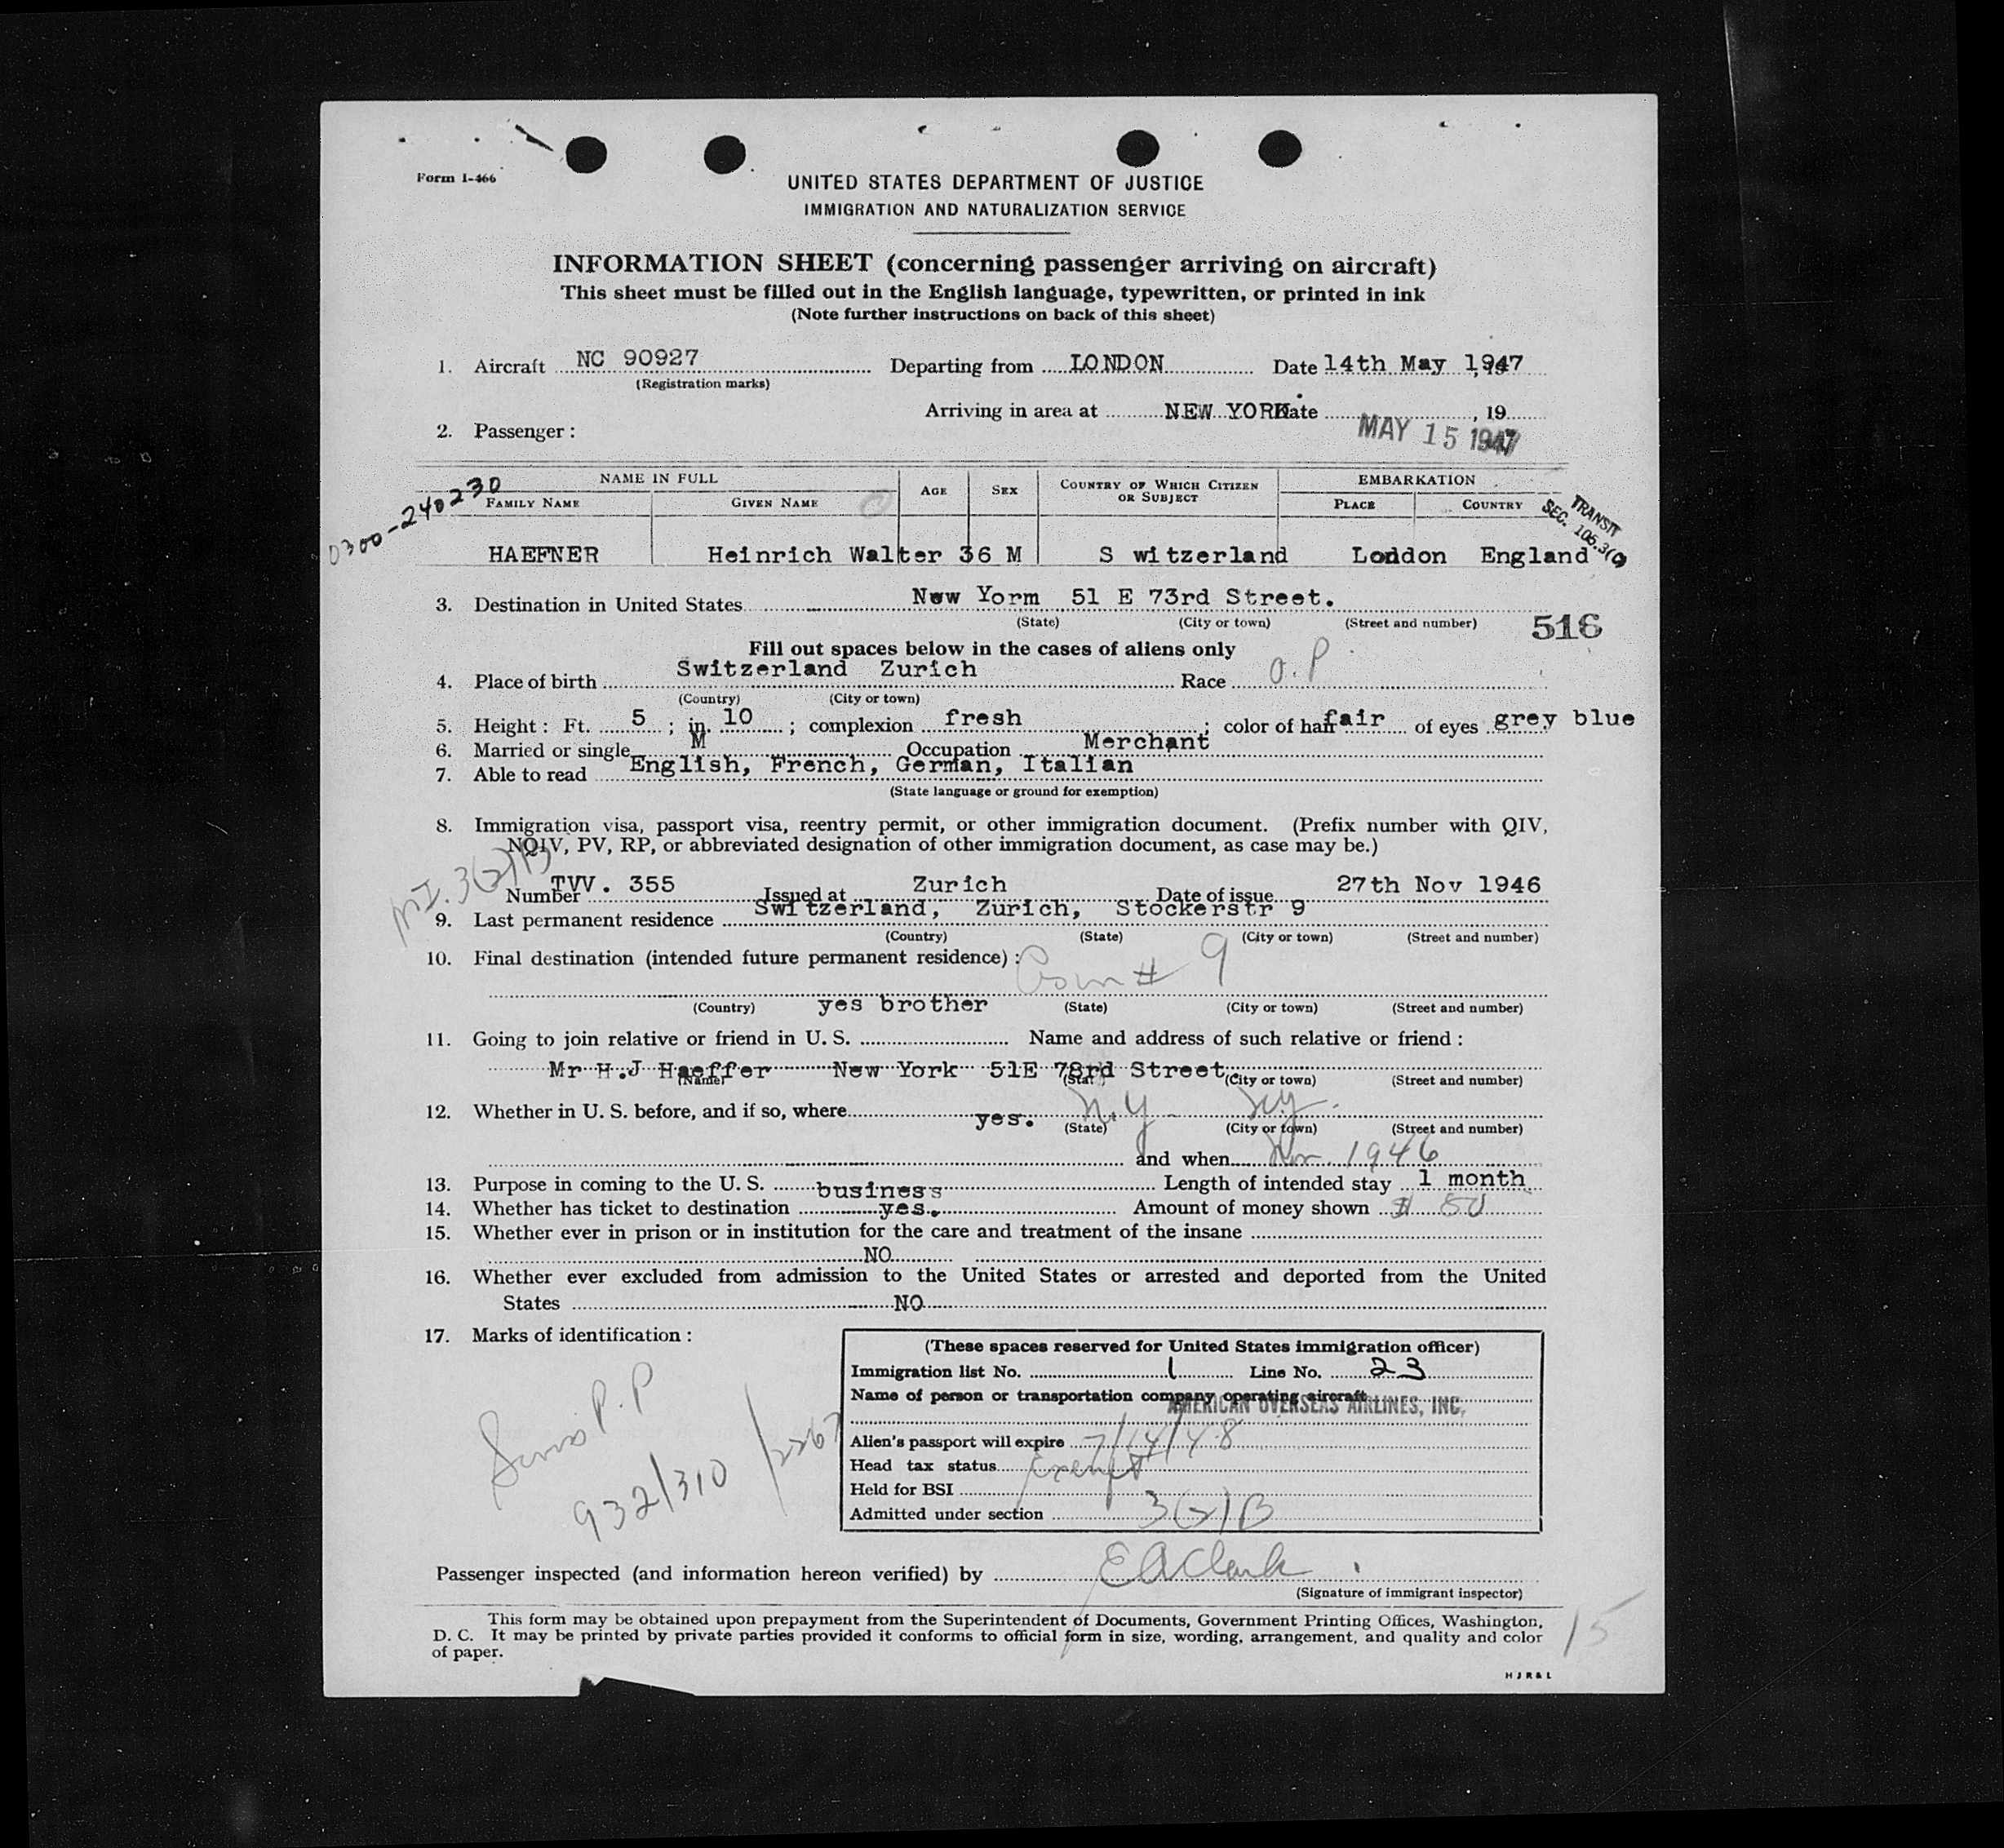 Form I-466
UNITED STATES DEPARTMENT OF JUSTICE
IMMIGRATION AND NATURALIZATION SERVICE
INFORMATION SHEET (concerning passenger arriving on aircraft)
This sheet must be filled out in the English language, typewritten, or printed in ink
(Note further instructions on back of this sheet)
1. Aircraft NC 90927 Departing from LONDON Date 14th May 1947
(Registration marks)
Arriving in area at NEW YORK Date , 19
MAY 15 1947
2. Passenger :
NAME IN FULL AGE SEX COUNTRY OF WHICH CITIZEN OR SUBJECT EMBARKATION
FAMILY NAME GIVEN NAME PLACE COUNTRY
0300-240230
TRANSIT
SEC. 105.3(
HAEFNER Heinrich Walter 36 M S witzerland London England
3. Destination in United States New Yorm 51 E 73rd Street.
(State) (City or town) (Street and number)
516
Fill out spaces below in the cases of aliens only
4. Place of birth Switzerland Zurich Race O.P
(Country) (City or town)
5. Height : Ft. 5 ; in. 10 ; complexion fresh ; color of hair fair of eyes grey blue
6. Married or single M Occupation Merchant
7. Able to read English, French, German, Italian
(State language or ground for exemption)
8. Immigration visa, passport visa, reentry permit, or other immigration document. (Prefix number with QIV,
NQIV, PV, RP, or abbreviated designation of other immigration document, as case may be.)
Number TVV. 355 Issued at Zurich Date of issue 27th Nov 1946
9. Last permanent residence Switzerland, Zurich, Stockerstr 9
(Country) (State) (City or town) (Street and number)
10. Final destination (intended future permanent residence) :
# 9
(Country) yes brother (State) (City or town) (Street and number)
11. Going to join relative or friend in U. S. Name and address of such relative or friend :
Mr H.J Haeffer New York 51E 73rd Street.
(Name) (State) (City or town) (Street and number)
12. Whether in U. S. before, and if so, where yes. N.Y. N.Y.
(State) (City or town) (Street and number)
and when Nov. 1946
13. Purpose in coming to the U. S. business Length of intended stay 1 month
14. Whether has ticket to destination yes. Amount of money shown $ 50
15. Whether ever in prison or in institution for the care and treatment of the insane
NO
16. Whether ever excluded from admission to the United States or arrested and deported from the United
States NO
17. Marks of identification :
P.P
932/310
(These spaces reserved for United States immigration officer)
Immigration list No. 1 Line No. 23
Name of person or transportation company operating aircraft
AMERICAN OVERSEAS AIRLINES, INC.
Alien's passport will expire 7/14/48
Head tax status Exempt
Held for BSI
Admitted under section 3(2)B
Passenger inspected (and information hereon verified) by EAClark
(Signature of immigrant inspector)
This form may be obtained upon prepayment from the Superintendent of Documents, Government Printing Offices, Washington,
D. C. It may be printed by private parties provided it conforms to official form in size, wording, arrangement, and quality and color
of paper.
15
H J R & L